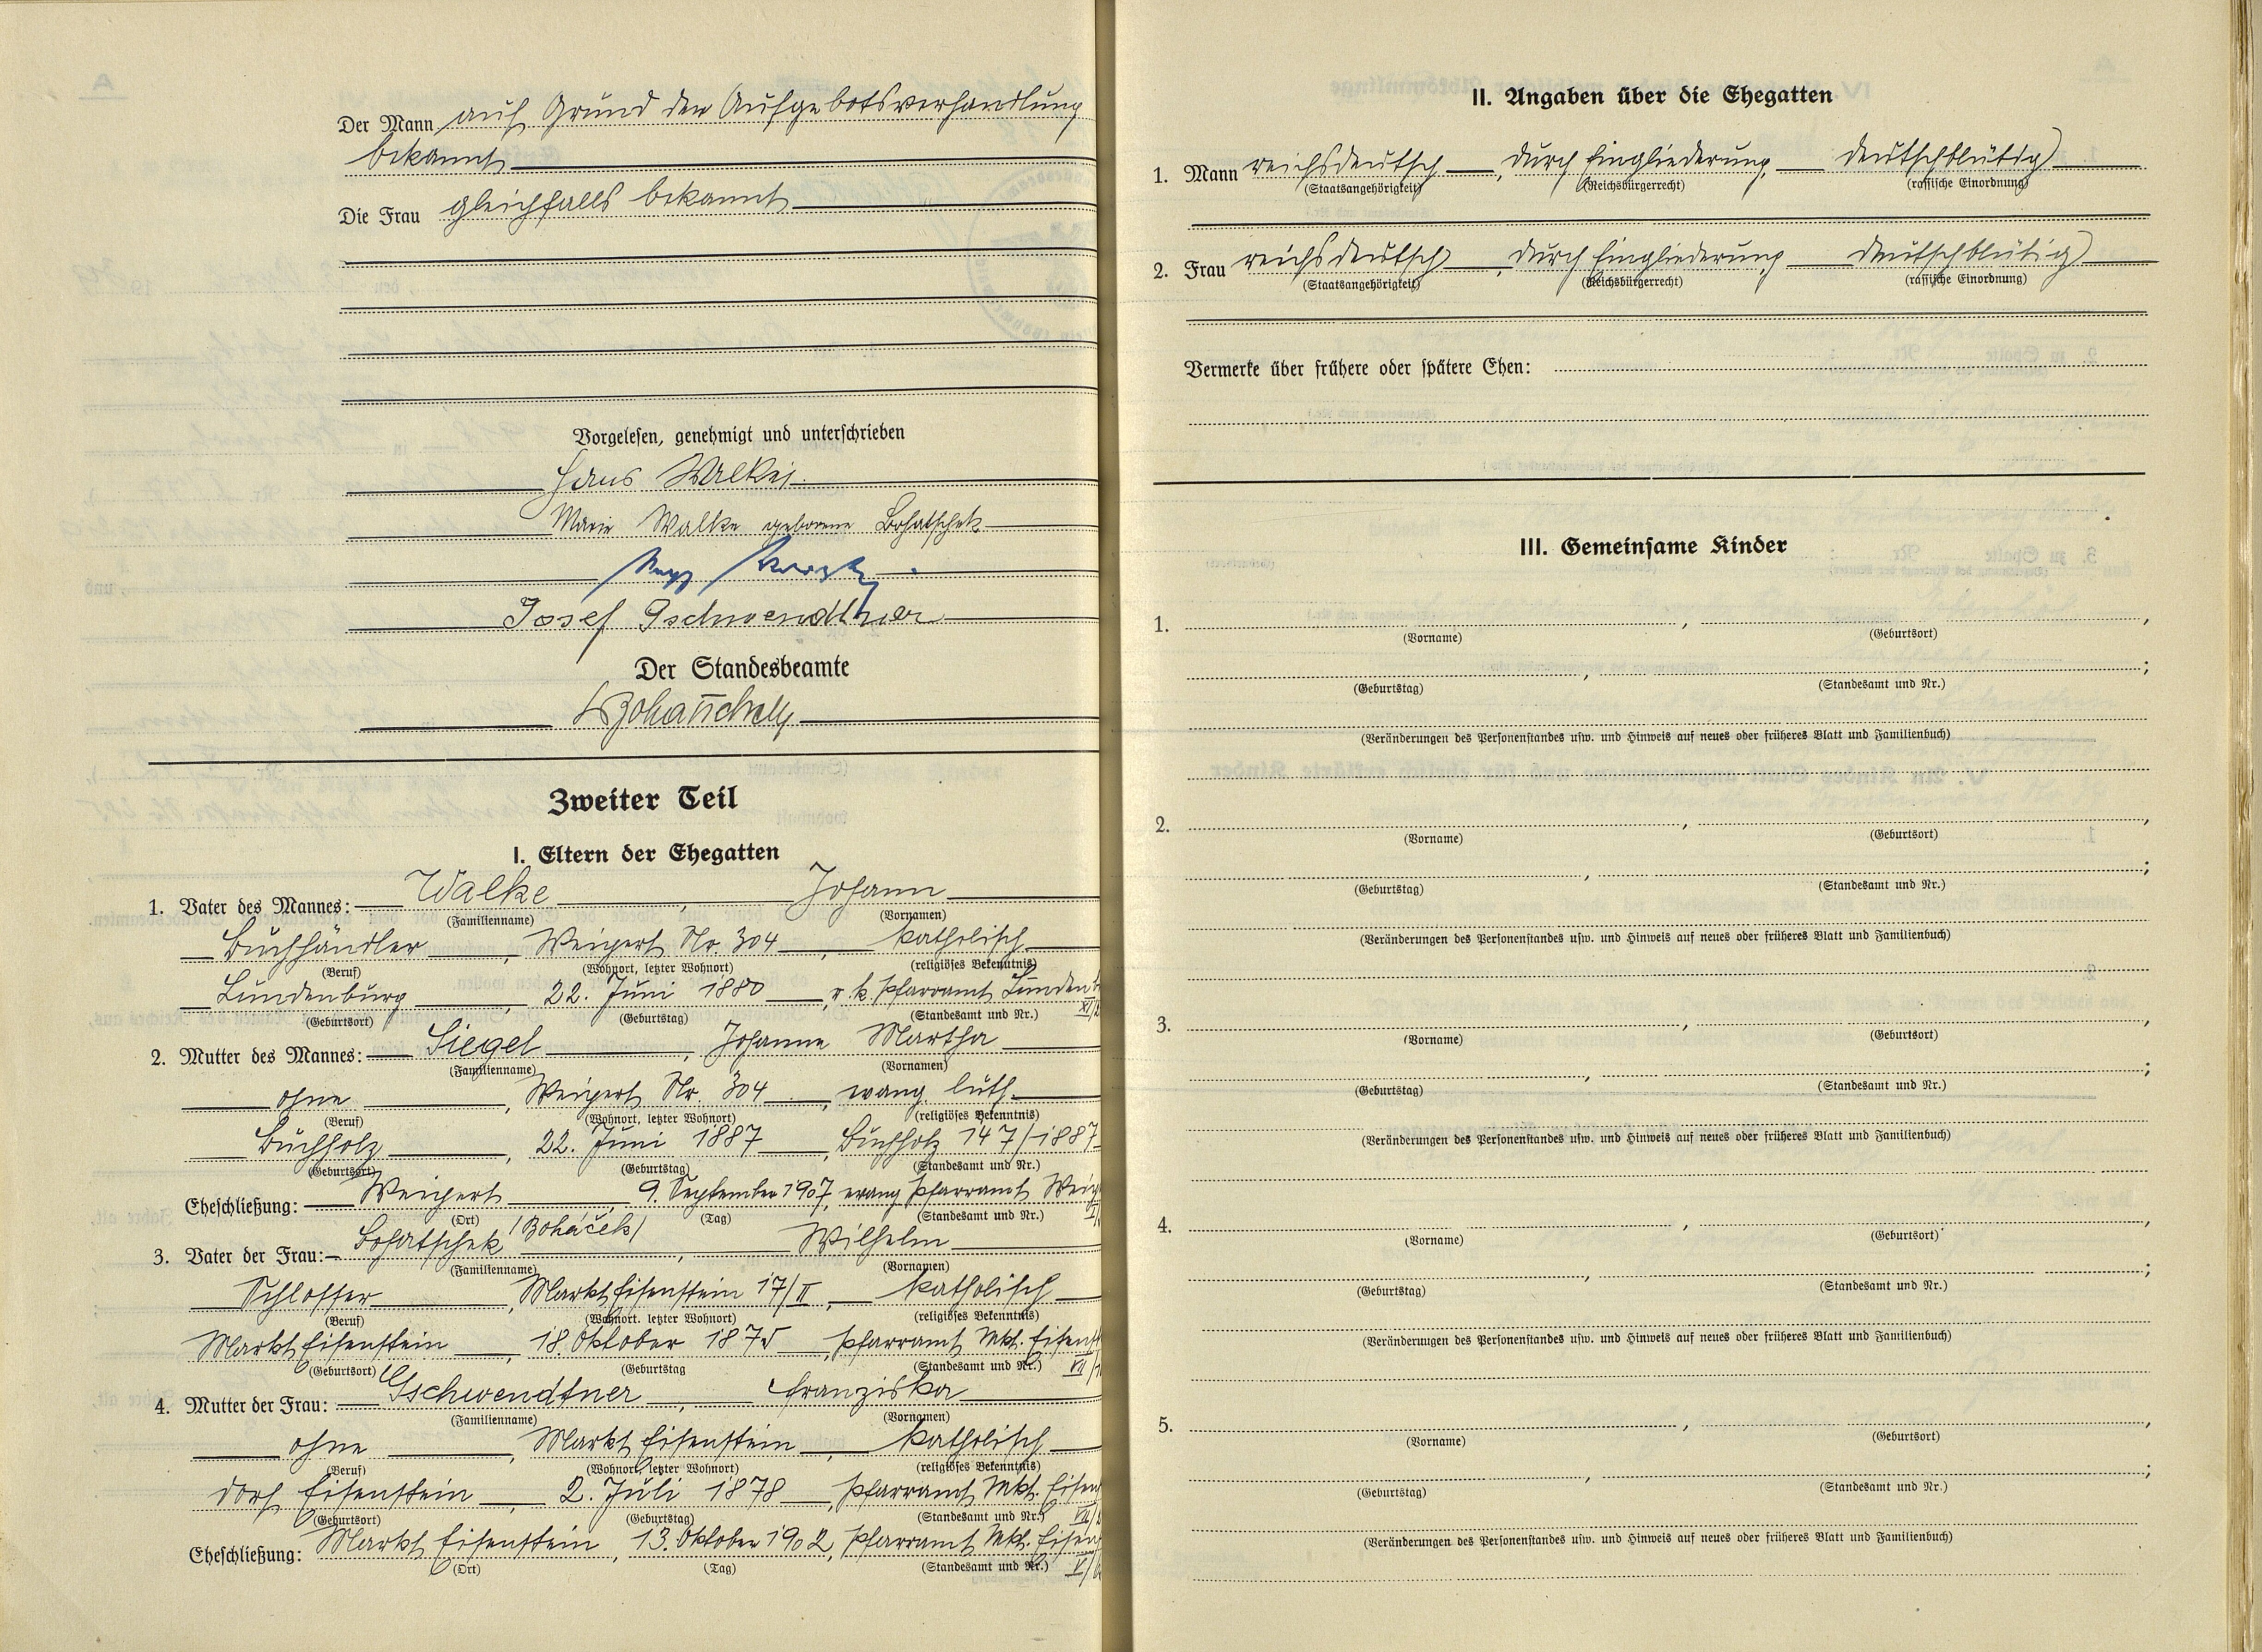 Der Mann auf Grund der Aufgebotsverhandlung
bekannt
Die Frau gleichfalls bekannt
Vorgelesen, genehmigt und unterschrieben
Hans Walke
Marie Walke geborene Bohatschek
Josef Gschwendtner
Der Standesbeamte
Zweiter Teil
I. Eltern der Ehegatten
1. Vater des Mannes: Walke, Johann
(Familienname) (Vornamen)
Buchhändler, Weipert Nr. 304, katholisch
(Beruf) (Wohnort, letzter Wohnort) (religiöses Bekenntnis)
Lundenburg, 22. Juni 1880, r. k. Pfarramt Lunden
(Geburtsort) (Geburtstag) (Standesamt und Nr.)
2. Mutter des Mannes: Siegel, Johanne Martha
(Familienname) (Vornamen)
ohne, Weipert Nr. 304, evang. luth.
(Beruf) (Wohnort, letzter Wohnort) (religiöses Bekenntnis)
Buchholz, 22. Juni 1887, Buchholz 147/1887
(Geburtsort) (Geburtstag) (Standesamt und Nr.)
Eheschließung: Weipert, 9. September 1907, evang Pfarramt Weip
(Ort) (Tag) (Standesamt und Nr.)
3. Vater der Frau: Bohatschek /Boháček/, Wilhelm
(Familienname) (Vornamen)
Schlosser, Markt Eisenstein 17/II, katholisch
(Beruf) (Wohnort. letzter Wohnort) (religiöses Bekenntnis)
Markt Eisenstein, 18. Oktober 1875, Pfarramt Mkt. Eisenst
(Geburtsort) (Geburtstag (Standesamt und Nr.) VII/
4. Mutter der Frau: Gschwendtner, Franziska
(Familienname) (Vornamen)
ohne, Markt Eisenstein, katholisch
(Beruf) (Wohnort, letzter Wohnort) (religiöses Bekenntnis)
Dorf Eisenstein, 2. Juli 1878, Pfarramt Mkt. Eisen
(Geburtsort) (Geburtstag) (Standesamt und Nr.)
Eheschließung: Markt Eisenstein, 13. Oktober 1902, Pfarramt Mkt. Eisen
(Ort) (Tag) (Standesamt und Nr.) V/
II. Angaben über die Ehegatten
1. Mann reichsdeutsch, durch Eingliederung, deutschblütig
(Staatsangehörigkeit) (Reichsbürgerrecht) (rassische Einordnung)
2. Frau reichsdeutsch, durch Eingliederung deutschblütig
(Staatsangehörigkeit) (Reichsbürgerrecht) (rassische Einordnung)
Vermerke über frühere oder spätere Ehen:
III. Gemeinsame Kinder
1. , ,
(Vorname) (Geburtsort)
, ;
(Geburtstag) (Standesamt und Nr.)
(Veränderungen des Personenstandes usw. und Hinweis auf neues oder früheres Blatt und Familienbuch)
2. , ,
(Vorname) (Geburtsort)
, ;
(Geburtstag) (Standesamt und Nr.)
(Veränderungen des Personenstandes usw. und Hinweis auf neues oder früheres Blatt und Familienbuch)
3. , ,
(Vorname) (Geburtsort)
, ;
(Geburtstag) (Standesamt und Nr.)
(Veränderungen des Personenstandes usw. und Hinweis auf neues oder früheres Blatt und Familienbuch)
4. , ,
(Vorname) (Geburtsort)
, ;
(Geburtstag) (Standesamt und Nr.)
(Veränderungen des Personenstandes usw. und Hinweis auf neues oder früheres Blatt und Familienbuch)
5. , ,
(Vorname) (Geburtsort)
, ;
(Geburtstag) (Standesamt und Nr.)
(Veränderungen des Personenstandes usw. und Hinweis auf neues oder früheres Blatt und Familienbuch)